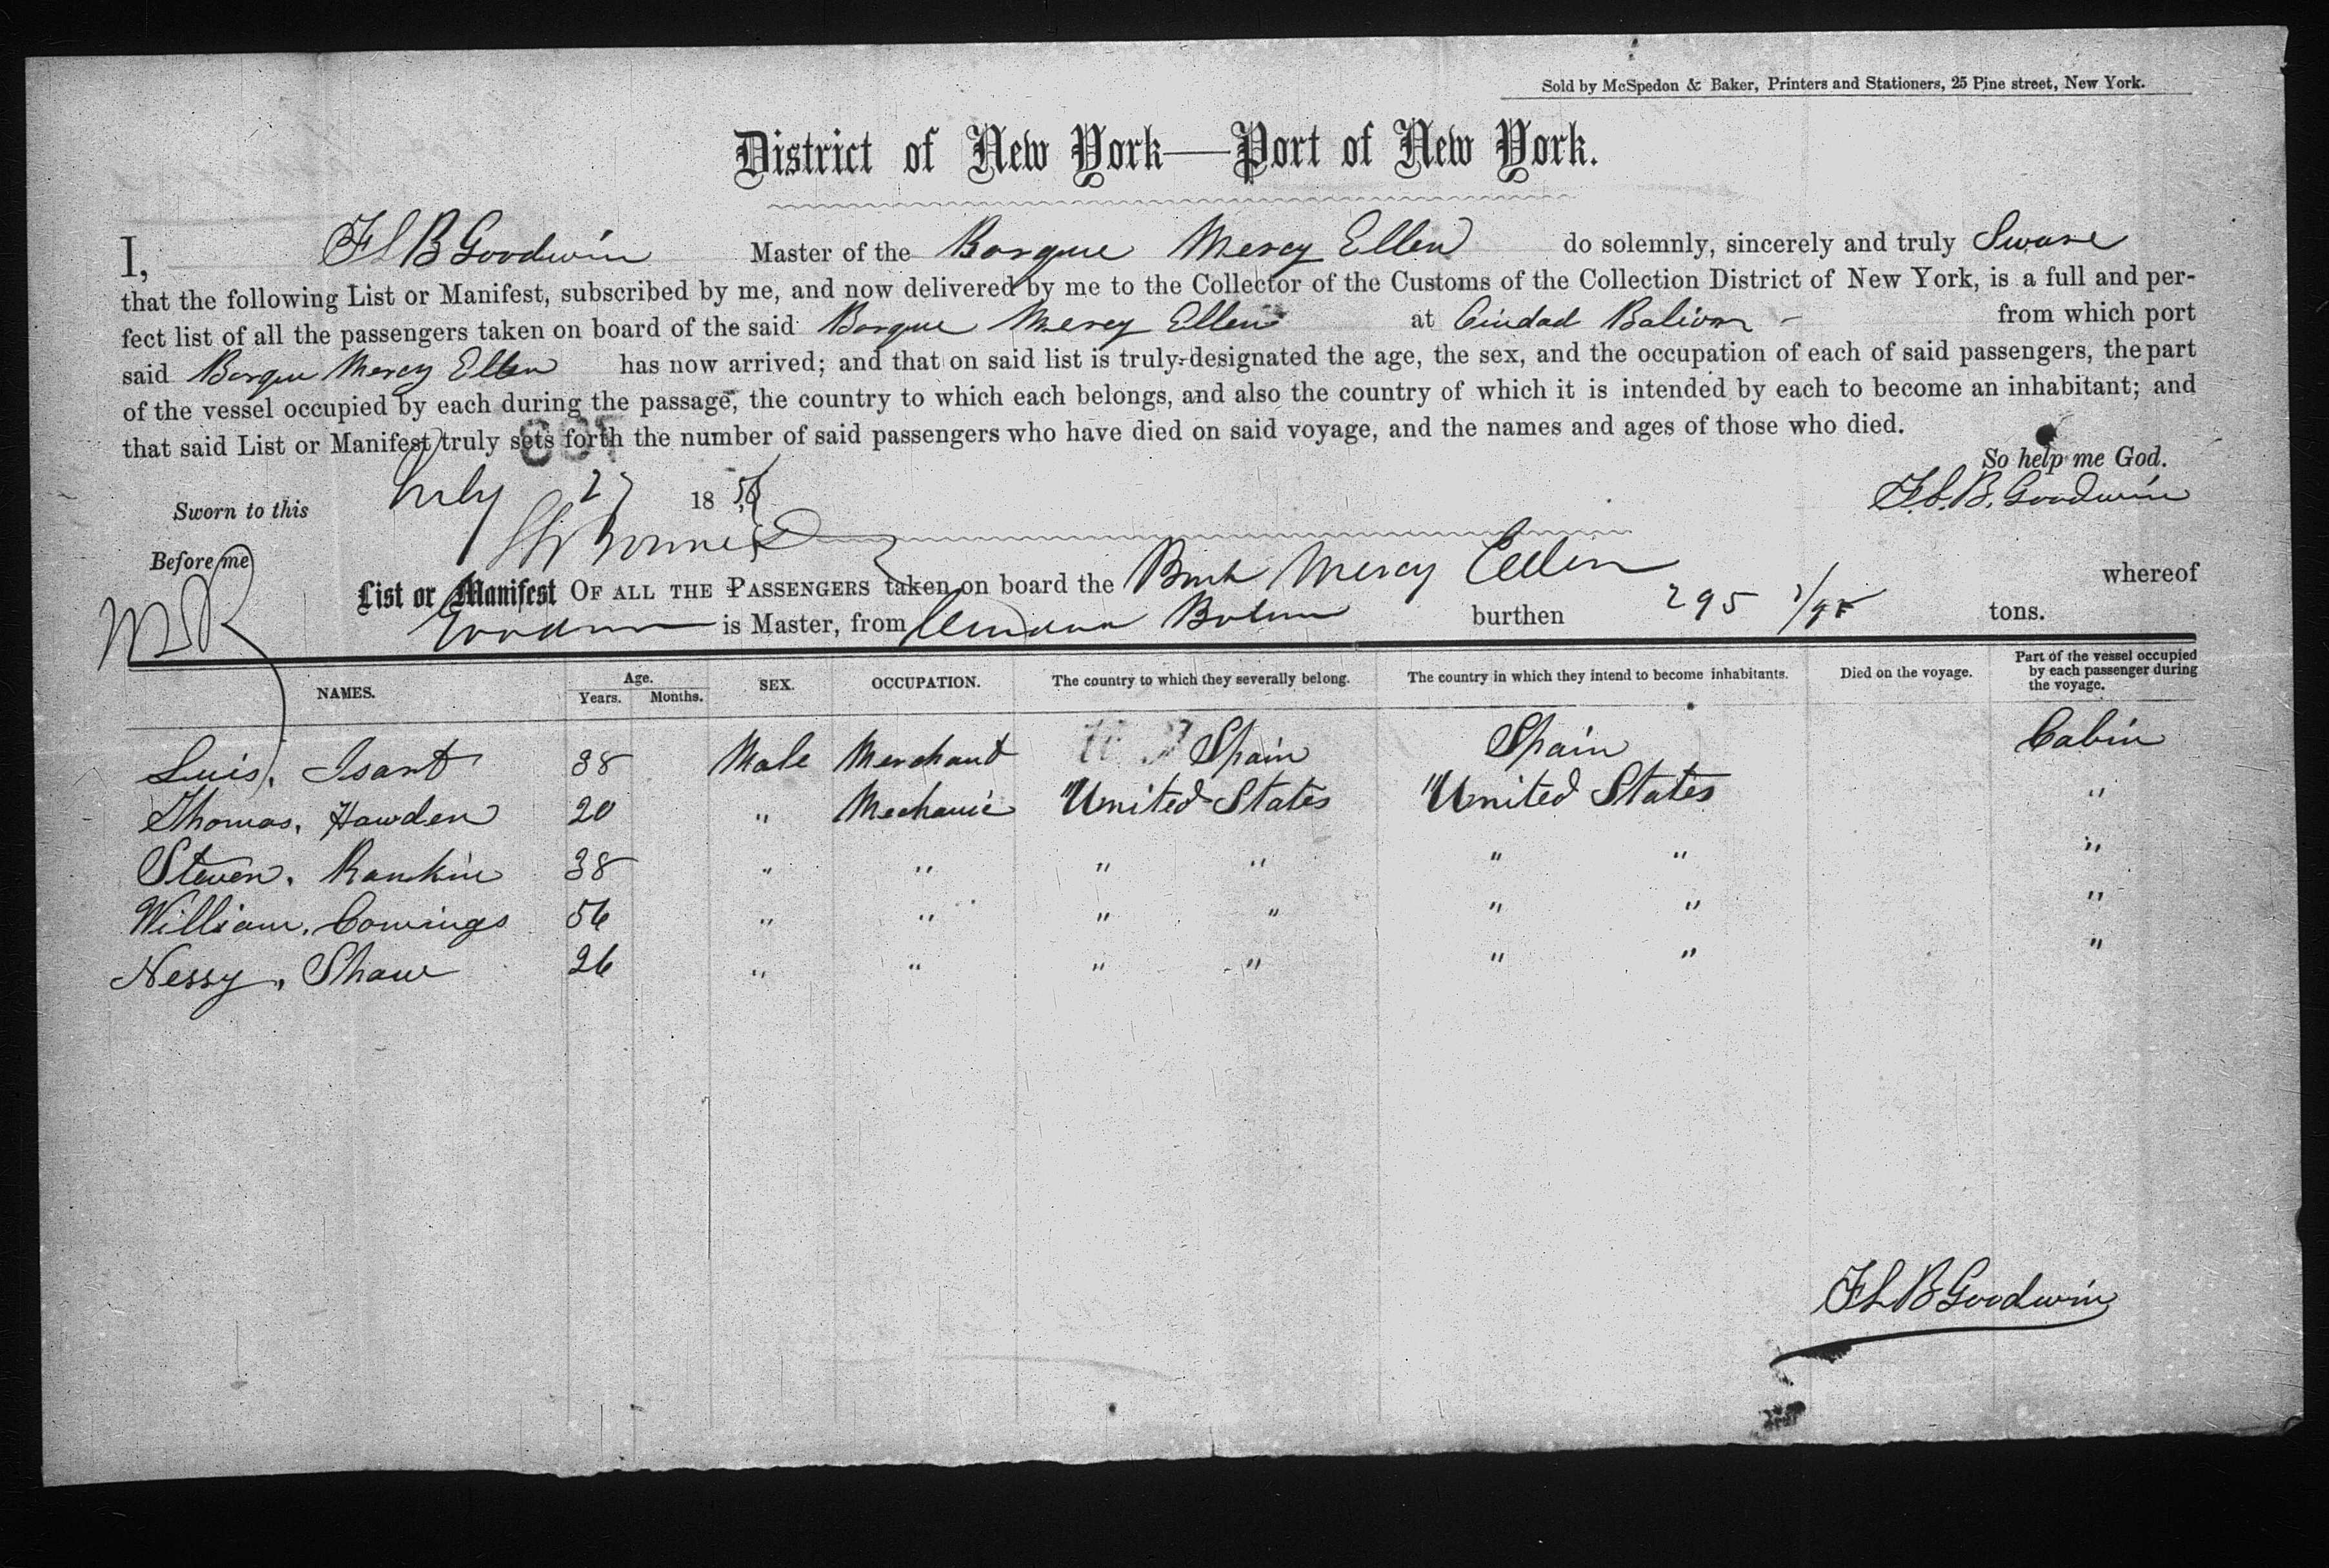 Sold by McSpedon & Baker, Printers and Stationers, 25 Pine street, New York.
District of New York—Port of New York.
I, F L B Goodwin Master of the Barque Mercy Ellen do solemnly, sincerely and truly Sware
that the following List or Manifest, subscribed by me, and now delivered by me to the Collector of the Customs of the Collection District of New York, is a full and per-
fect list of all the passengers taken on board of the said Barque Mercy Ellen at Ciudad Bolivar - from which port
said Barque Mercy Ellen has now arrived; and that on said list is truly designated the age, the sex, and the occupation of each of said passengers, the part
of the vessel occupied by each during the passage, the country to which each belongs, and also the country of which it is intended by each to become an inhabitant; and
that said List or Manifest truly sets forth the number of said passengers who have died on said voyage, and the names and ages of those who died.
So help me God.
Sworn to this July 27 18 F. L. B. Goodwin
Before me
List or Manifest OF ALL THE PASSENGERS taken on board the Bark Mercy Ellen whereof
Goodwin is Master, from burthen 295 tons.
NAMES. Age. Years. Months. SEX. OCCUPATION. The country to which they severally belong. The country in which they intend to become inhabitants. Died on the voyage. Part of the vessel occupied by each passenger during the voyage.
Luis, Isart 38 Male Merchant Spain Spain Cabin
Thomas, Hawden 20 " Mechanic United States United States "
Steven, Rankin 38 " " " " " " "
William, Comings 56 " " " " " " "
Nessy, Shaw 26 " " " " " " "
F L B Goodwin